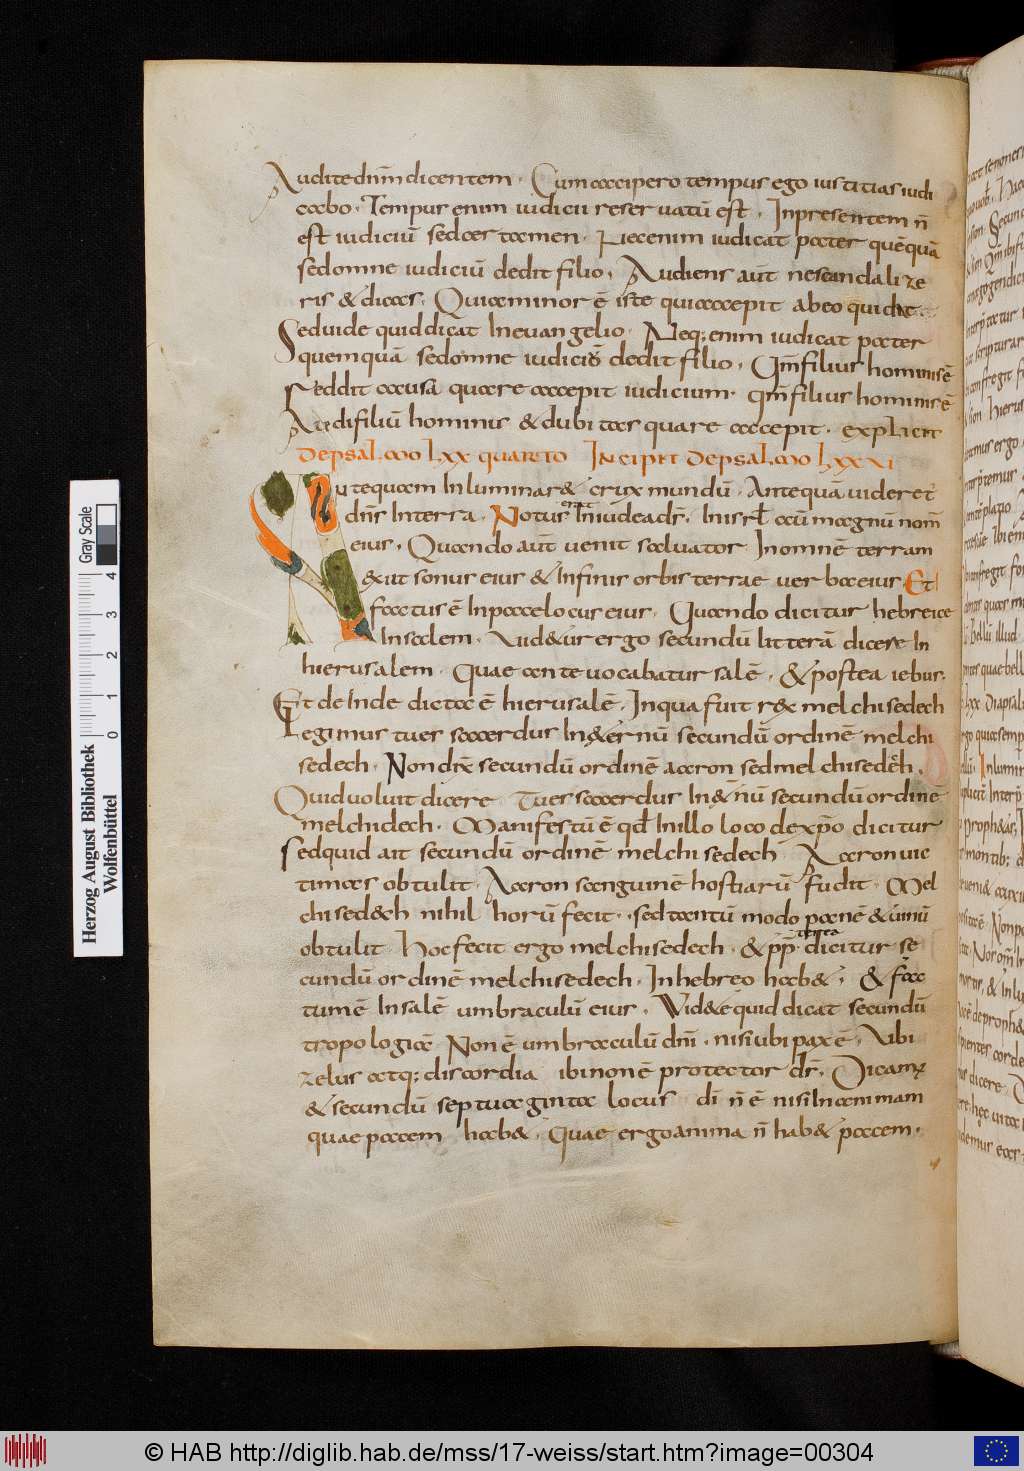 Audite dnm dicentem. Cum accipero tempus ego iustitias iudi
cabo. Tempus enim iudicii reservatū est. In presentem n̄
est iudiciū sed aestamen. Nec enim iudicat pater quēquā
sed omne iudiciū dedit filio. Audiens aut̄ ne scandalize
ris & dicas. Quia minor ē iste qui accepit ab eo qui dedit.
Sed vide quid dicat In euangelio. Neq; enim iudicat pater
quemquā sed omne iudiciū dedit filio. Qm̄ filius hominis ē
Reddit causā quare accepit iudicium. qm̄ filius hominis ē
Audi filiū hominis & dubitas quare accepit. explicit
de psalmo lxx quarto Incipit de psalmo lxxvi
Antequam Inluminar& crux mundū. Antequā videret̄
dn̄s In terra. Notus erat In iudea d̄s. In isrl̄ cū magnū nom̄
eius. Quando aut̄ venit salvator In omnē terram
&iit sonus eius & In finis orbis terrae verba eius. Et
factus ē In pace locus eius. Quando dicitur hebreice
In salem. Vid&ur ergo secundū litterā dicere In
hierusalem. Quae ante vocabatur salē. & postea iebus.
Et de Inde dicta ē hierusalē. In qua fuit rex melchisedech
Legimus tu es sacerdus In &ernū secundū ordinē melchi
sedech. Non dix̄ secundū ordinē aaron sed melchisedech.
Quid voluit dicere Tu es sacerdus In &nū secundū ordinē
melchidech. Manifestū ē qd̄ In illo loco de xp̄o dicitur
Sed quid ait secundū ordinē melchisedech Aaron vic
timas obtulit. Aaron sanguinē hostiarū fudit. Mel
chised&ch nihil horū fecit. sed tantū modo panē & vinū
obtulit Hoc fecit ergo melchisedech. & pp̄ terea dicitur se
cundū ordinē melchisedech. In hebreo hab&. & fac
tum ē In salē umbraculū eius. Vid&e quid dicat secundū
tropologiā Non ē umbraculū dn̄i. nisi ubi pax ē. Ubi
zelus atq; discordia ibi non ē protector d̄s. Dicam;
& secundū septuaginta locus di n̄ ē nisi In animam
quae pacem hab&. Quae ergo anima n̄ hab& pacem.
Herzog August Bibliothek
Wolfenbüttel
Gray Scale
0 1 2 3 4
© HAB http://diglib.hab.de/mss/17-weiss/start.htm?image=00304